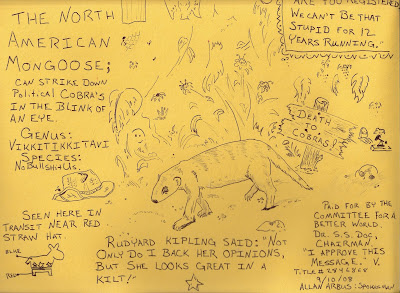 THE NORTH
AMERICAN
MONGOOSE;
CAN STRIKE DOWN
POLITICAL COBRA'S
IN THE BLINK OF
AN EYE.
GENUS:
VIKKITIKKITAVI
SPECIES:
NOBULLSHITUS.
SEEN HERE IN
TRANSIT NEAR RED
STRAW HAT.
ARE YOU REGISTERED
WE CAN'T BE THAT
STUPID FOR 12
YEARS RUNNING."
DEATH
TO
COBRAS!
RUDYARD KIPLING SAID: "NOT
ONLY DO I BACK HER OPINIONS,
BUT SHE LOOKS GREAT IN A
KILT!"
PAID FOR BY THE
COMMITTEE FOR A
BETTER WORLD.
DR. S.S. DOG,
CHAIRMAN.
"I APPROVE THIS
MESSAGE." V.
9/10/08
ALLAN ARBUS: SPOKESMAN
BLUE